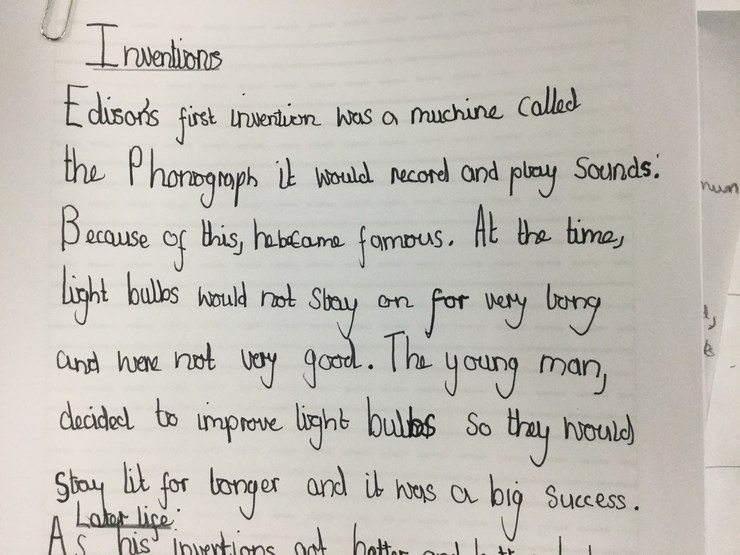 Inventions
Edison's first invention was a muchine called
the Phonograph it would record and play Sounds.
Because of this, hebcame famous. At the time,
light bulbs would not stay on for very long
and were not very good. The young man,
decided to improve light bulbs so they would
stay lit for longer and it was a big success.
Later life:
As his inventions got better and